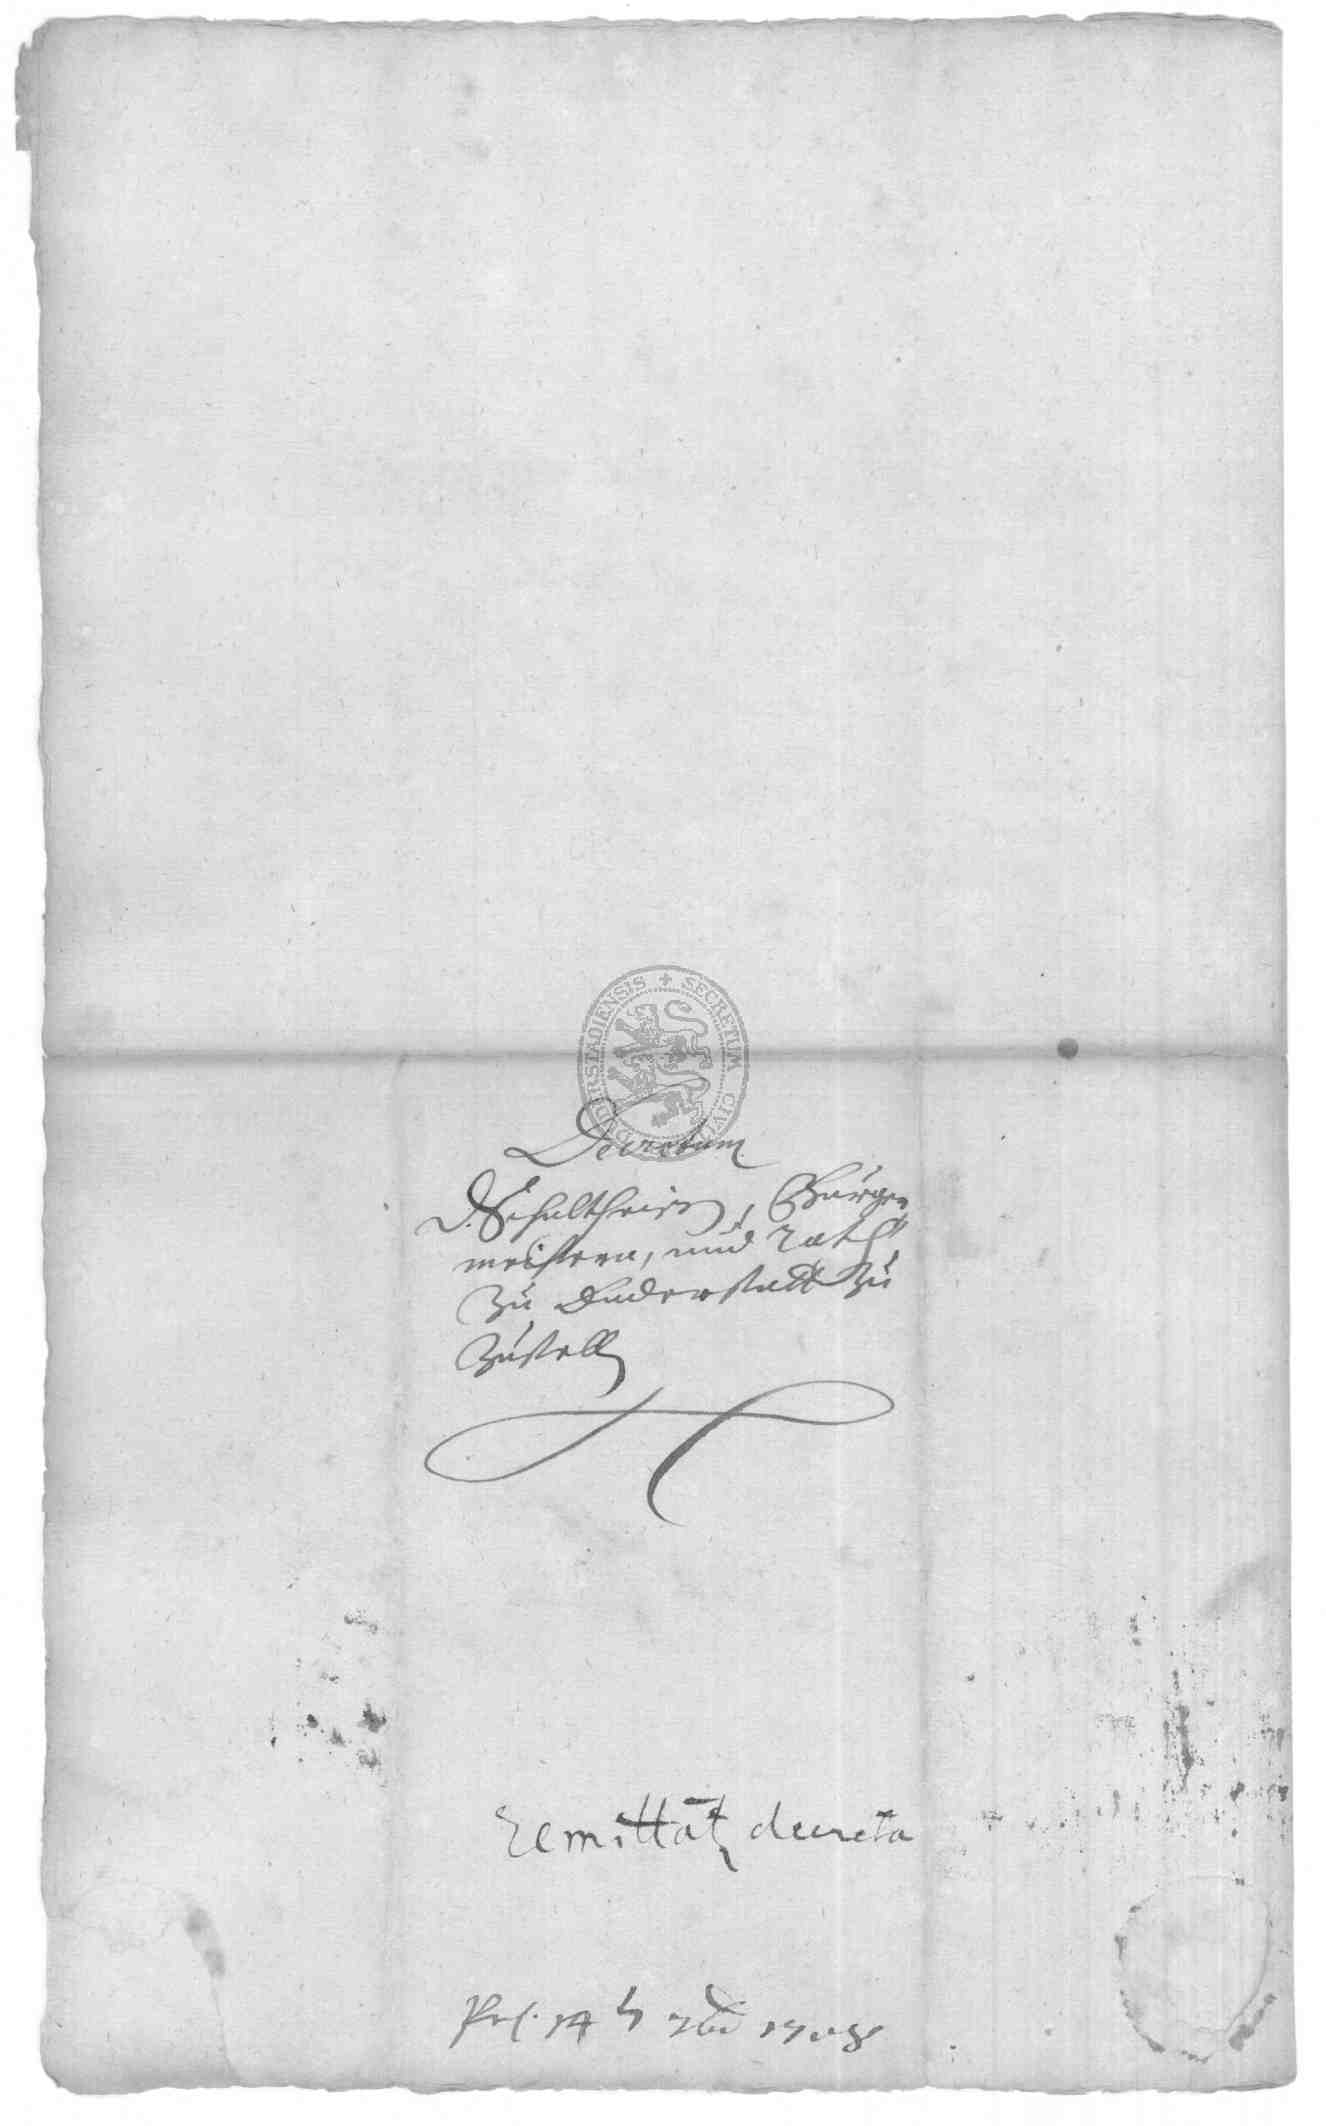 SECRETUM CIVIT DUDERSTADIENSIS
Decretum
D. Schultheiss, Bürger
meistern, und Rath
zu Duderstatt zu
zustell
Remittat decreta
Prs. 14 7bris 1708